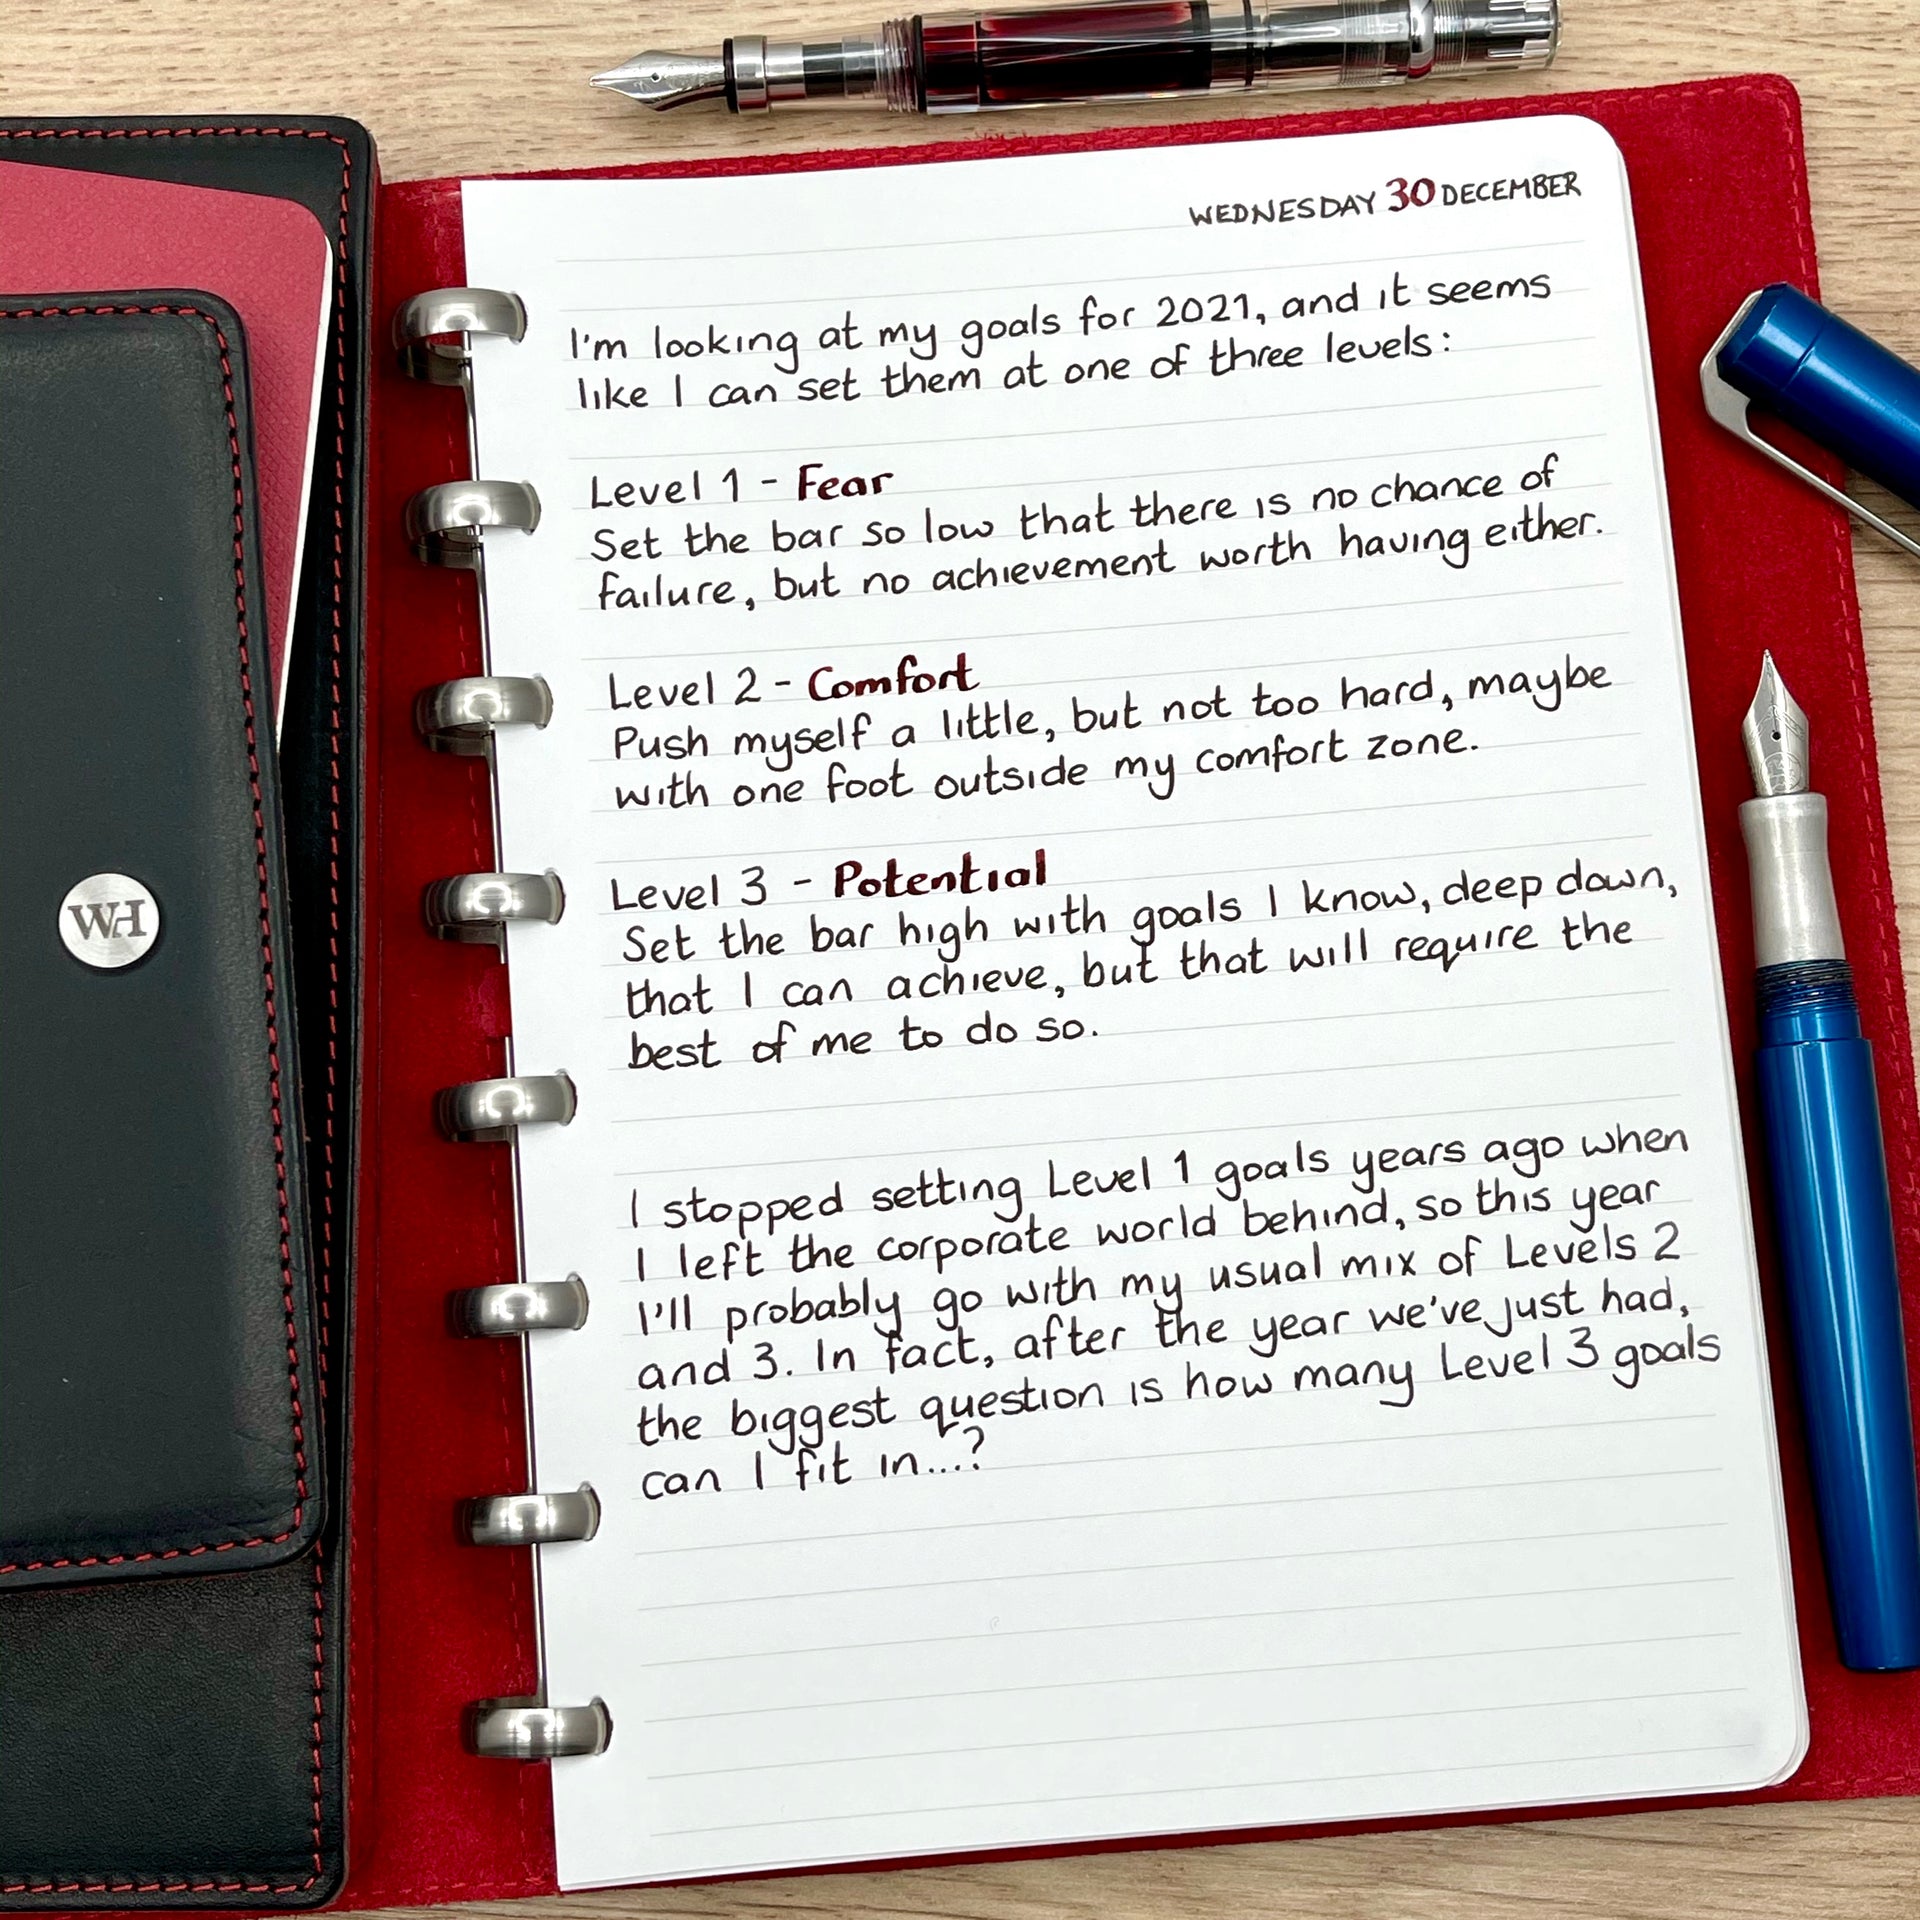 WEDNESDAY 30 DECEMBER
I'm looking at my goals for 2021, and it seems
like I can set them at one of three levels:
Level 1 - Fear
Set the bar so low that there is no chance of
failure, but no achievement worth having either.
Level 2 - Comfort
Push myself a little, but not too hard, maybe
with one foot outside my comfort zone.
Level 3 - Potential
Set the bar high with goals I know, deep down,
that I can achieve, but that will require the
best of me to do so.
I stopped setting Level 1 goals years ago when
I left the corporate world behind, so this year
I'll probably go with my usual mix of Levels 2
and 3. In fact, after the year we've just had,
the biggest question is how many Level 3 goals
can I fit in...?
WH